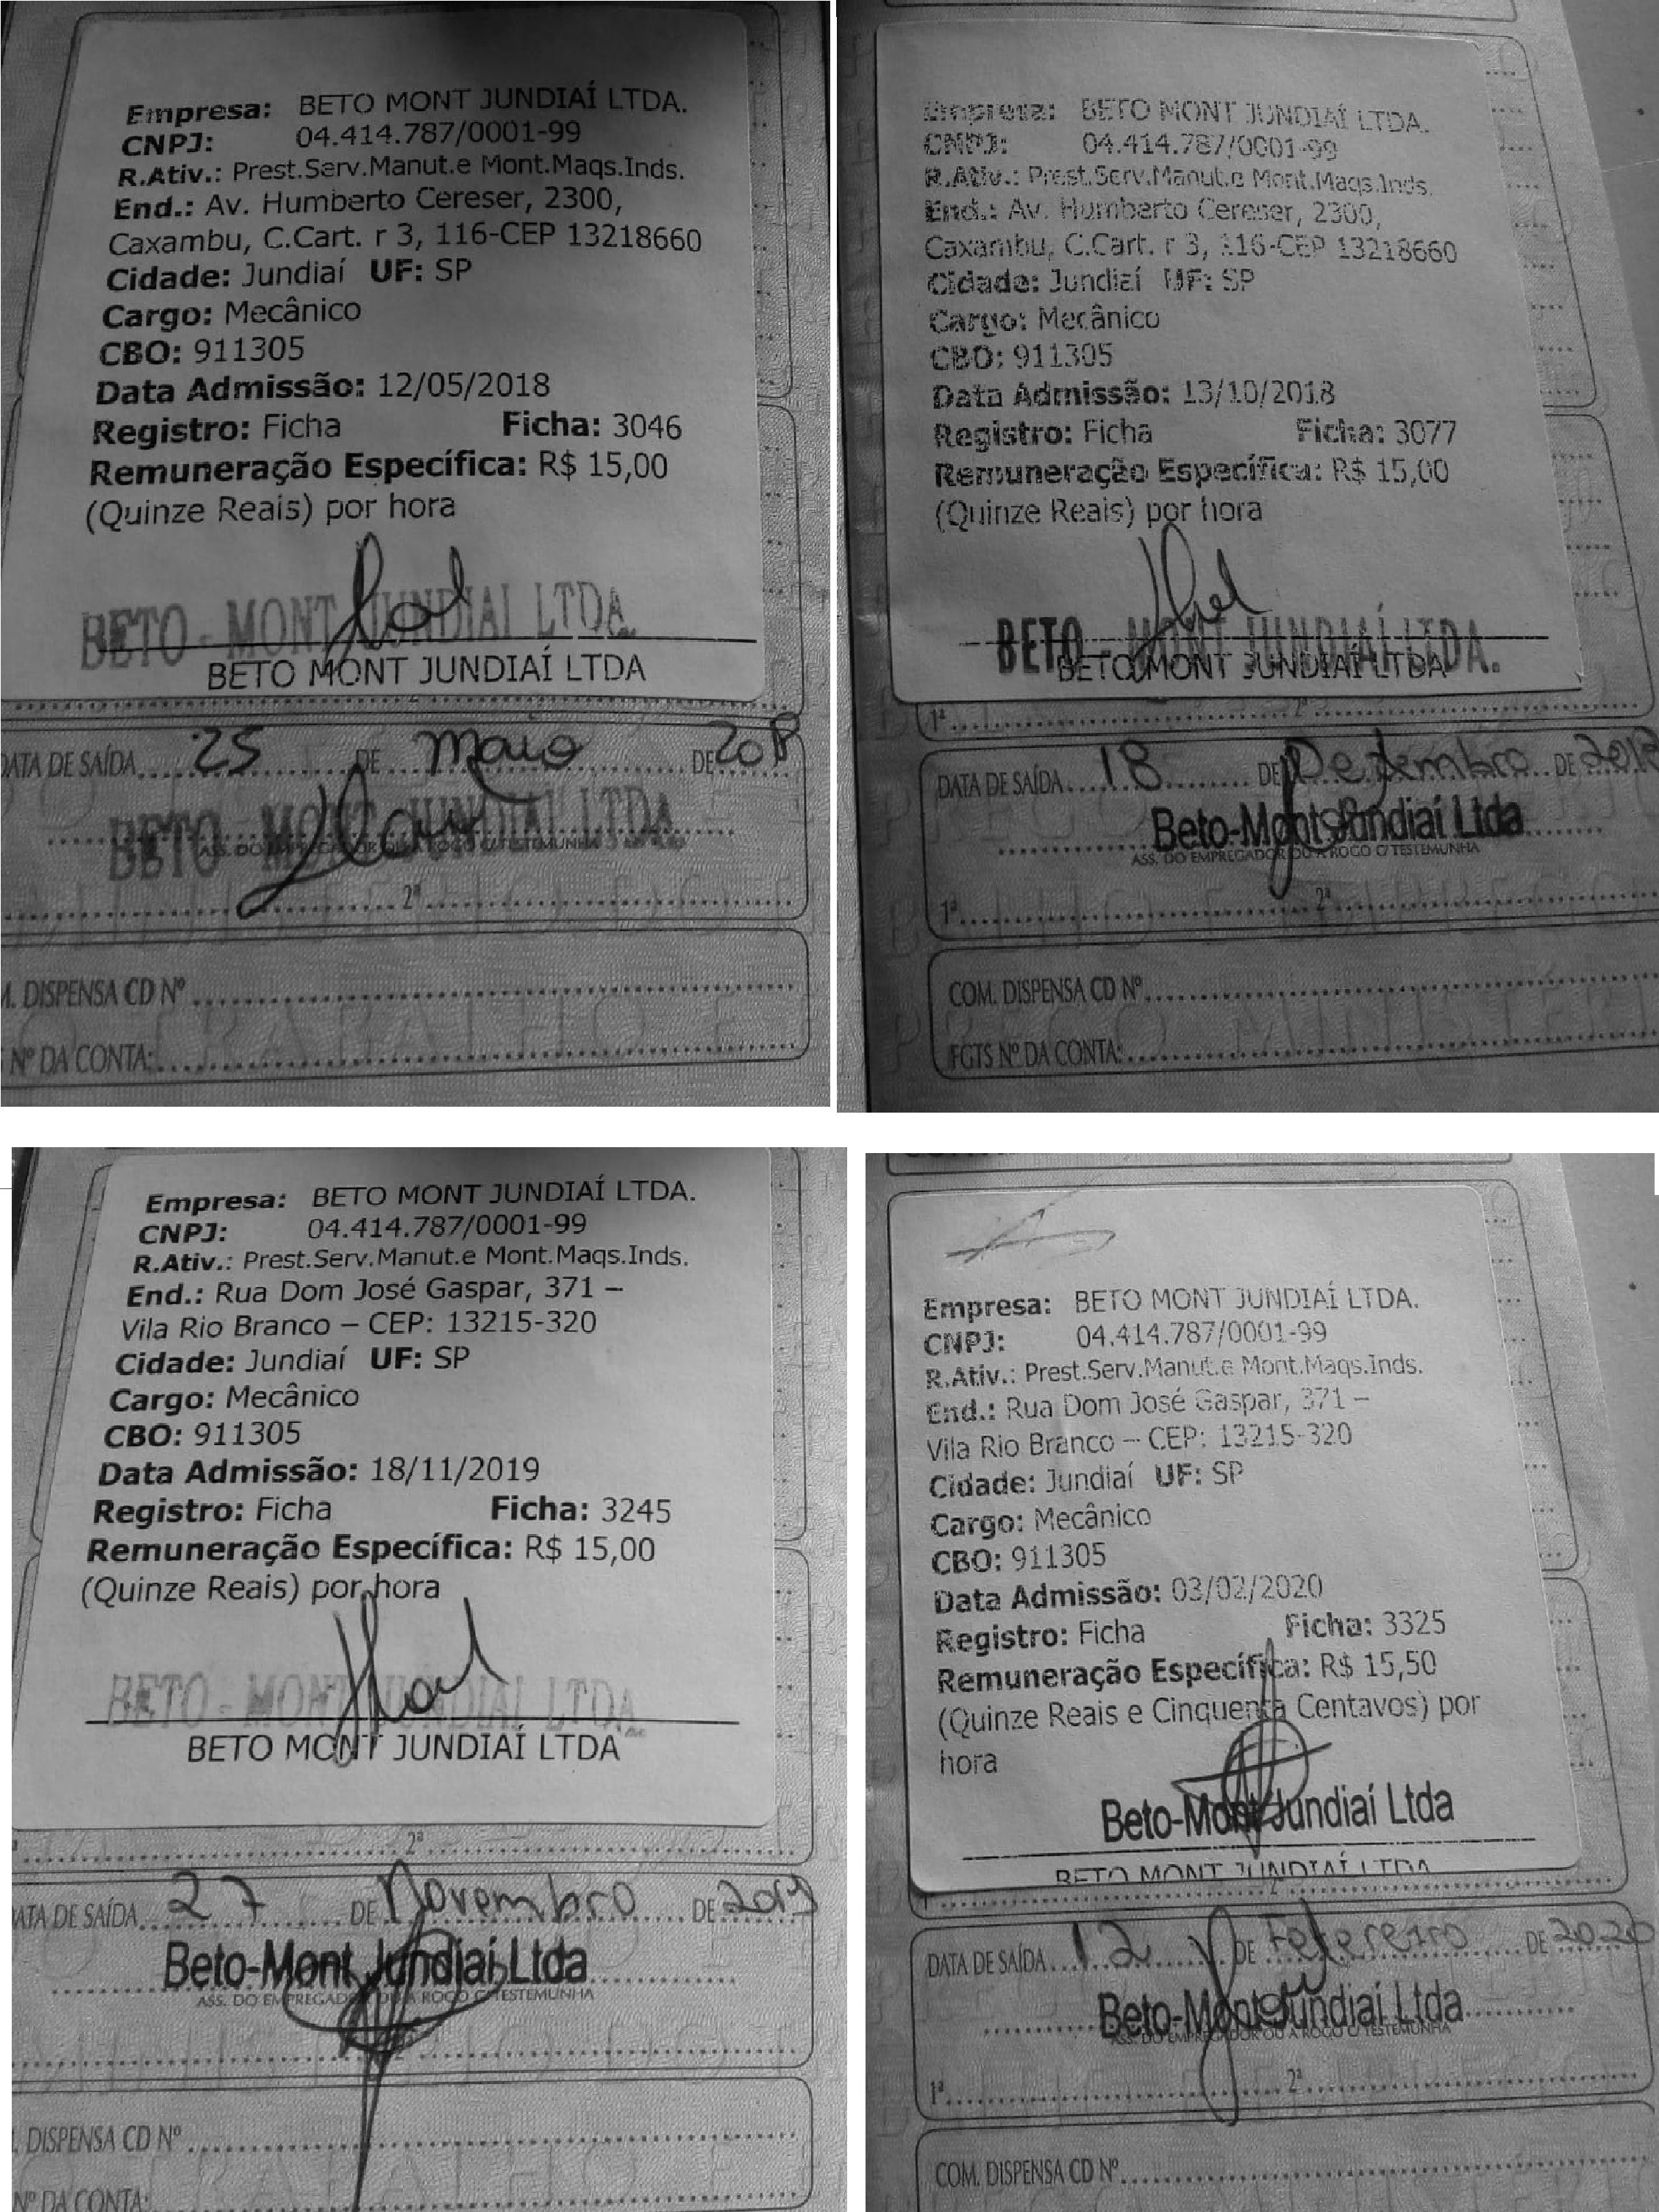 Empresa: BETO MONT JUNDIAÍ LTDA.
CNPJ: 04.414.787/0001-99
R.Ativ.: Prest.Serv.Manut.e Mont.Maqs.Inds.
End.: Av. Humberto Cereser, 2300,
Caxambu, C.Cart. r 3, 116-CEP 13218660
Cidade: Jundiaí UF: SP
Cargo: Mecânico
CBO: 911305
Data Admissão: 12/05/2018
Registro: Ficha Ficha: 3046
Remuneração Específica: R$ 15,00
(Quinze Reais) por hora
BETO - MONT JUNDIAI LTDA.
BETO MONT JUNDIAÍ LTDA
2ª
DATA DE SAÍDA 25 DE Maio DE 2018
BETO - MONT JUNDIAI LTDA
ASS. DO EMPREGADOR OU A ROGO C/ TESTEMUNHA
2ª
M. DISPENSA CD Nº
Nº DA CONTA:
Empresa: BETO MONT JUNDIAÍ LTDA.
CNPJ: 04.414.787/0001-99
R.Ativ.: Prest.Serv.Manut.e Mont.Maqs.Inds.
End.: Av. Humberto Cereser, 2300,
Caxambu, C.Cart. r 3, 116-CEP 13218660
Cidade: Jundiaí UF: SP
Cargo: Mecânico
CBO: 911305
Data Admissão: 13/10/2018
Registro: Ficha Ficha: 3077
Remuneração Específica: R$ 15,00
(Quinze Reais) por hora
BETO - MONT JUNDIAÍ LTDA.
BETO MONT JUNDIAÍ LTDA
1ª 2ª
DATA DE SAÍDA 18 DE Dezembro DE 2018
Beto-Mont Jundiaí Ltda
ASS. DO EMPREGADOR OU A ROGO C/ TESTEMUNHA
1ª 2ª
COM. DISPENSA CD Nº
FGTS Nº DA CONTA:
Empresa: BETO MONT JUNDIAÍ LTDA.
CNPJ: 04.414.787/0001-99
R.Ativ.: Prest.Serv.Manut.e Mont.Maqs.Inds.
End.: Rua Dom José Gaspar, 371 –
Vila Rio Branco – CEP: 13215-320
Cidade: Jundiaí UF: SP
Cargo: Mecânico
CBO: 911305
Data Admissão: 18/11/2019
Registro: Ficha Ficha: 3245
Remuneração Específica: R$ 15,00
(Quinze Reais) por hora
BETO - MONT JUNDIAI LTDA.
BETO MONT JUNDIAÍ LTDA
2ª
DATA DE SAÍDA 27 DE Novembro DE 2019
Beto-Mont Jundiaí Ltda
ASS. DO EMPREGADOR OU A ROGO C/ TESTEMUNHA
DISPENSA CD Nº
Nº DA CONTA:
Empresa: BETO MONT JUNDIAÍ LTDA.
CNPJ: 04.414.787/0001-99
R.Ativ.: Prest.Serv.Manut.e Mont.Maqs.Inds.
End.: Rua Dom José Gaspar, 371 –
Vila Rio Branco – CEP: 13215-320
Cidade: Jundiaí UF: SP
Cargo: Mecânico
CBO: 911305
Data Admissão: 03/02/2020
Registro: Ficha Ficha: 3325
Remuneração Específica: R$ 15,50
(Quinze Reais e Cinquenta Centavos) por
hora
Beto-Mont Jundiaí Ltda
BETO MONT JUNDIAÍ LTDA
DATA DE SAÍDA 12 DE Fevereiro DE 2020
Beto-Mont Jundiaí Ltda
ASS. DO EMPREGADOR OU A ROGO C/ TESTEMUNHA
1ª 2ª
COM. DISPENSA CD Nº